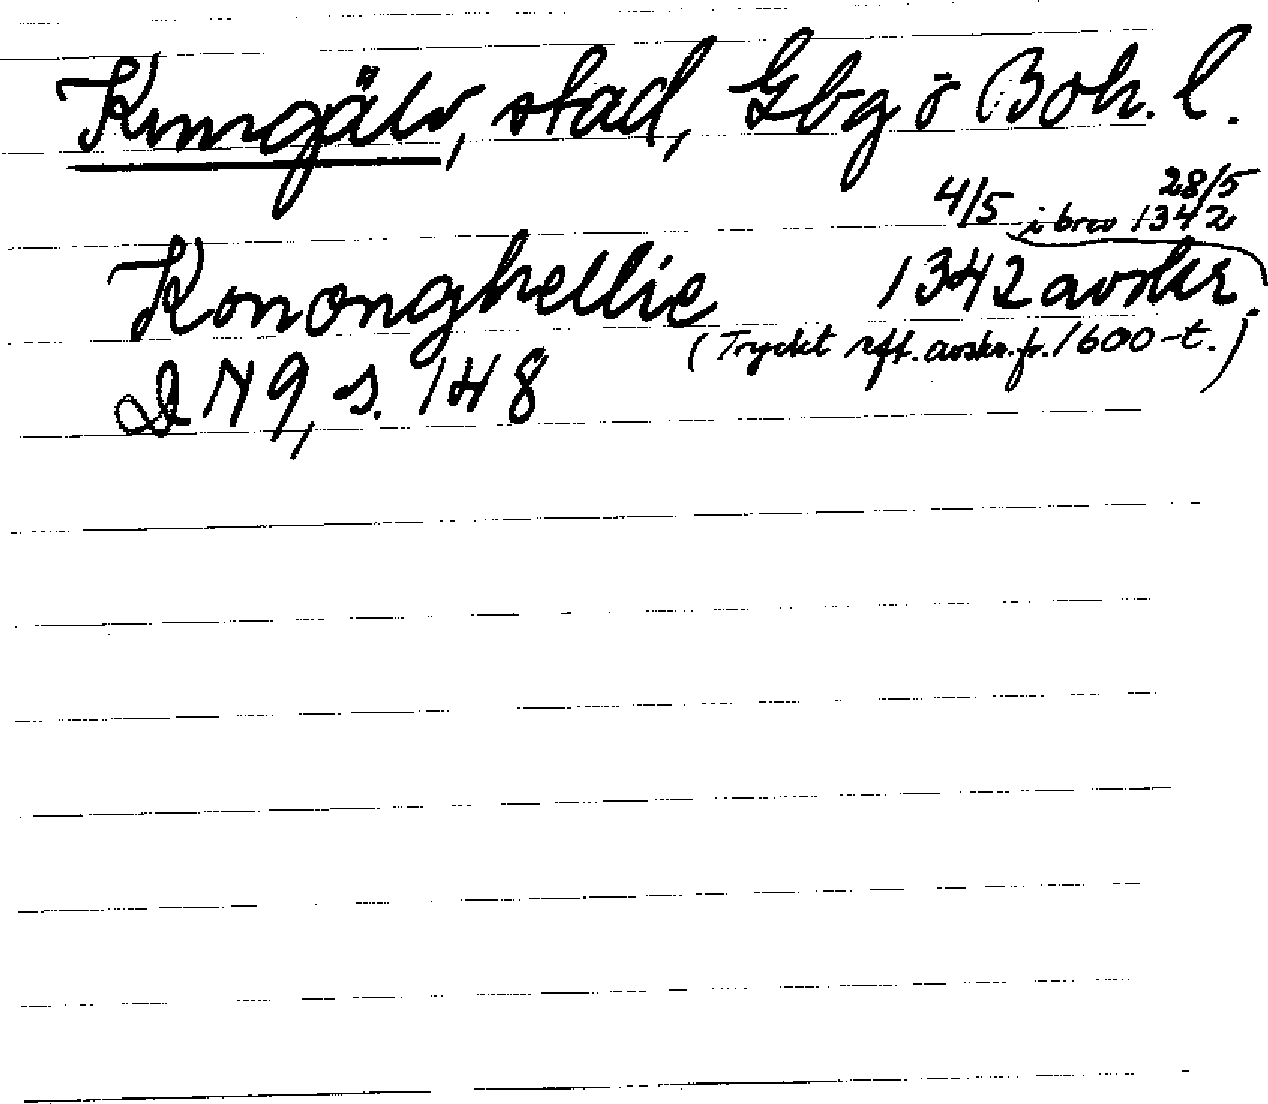 Kungälv, stad, Gbg o Boh. l.
4/5 i brev 28/5 1342
Kononghellie 1342 avskr.
(Tryckt eft. avskr. fr. 1600-t.)
DN 9, s. 148